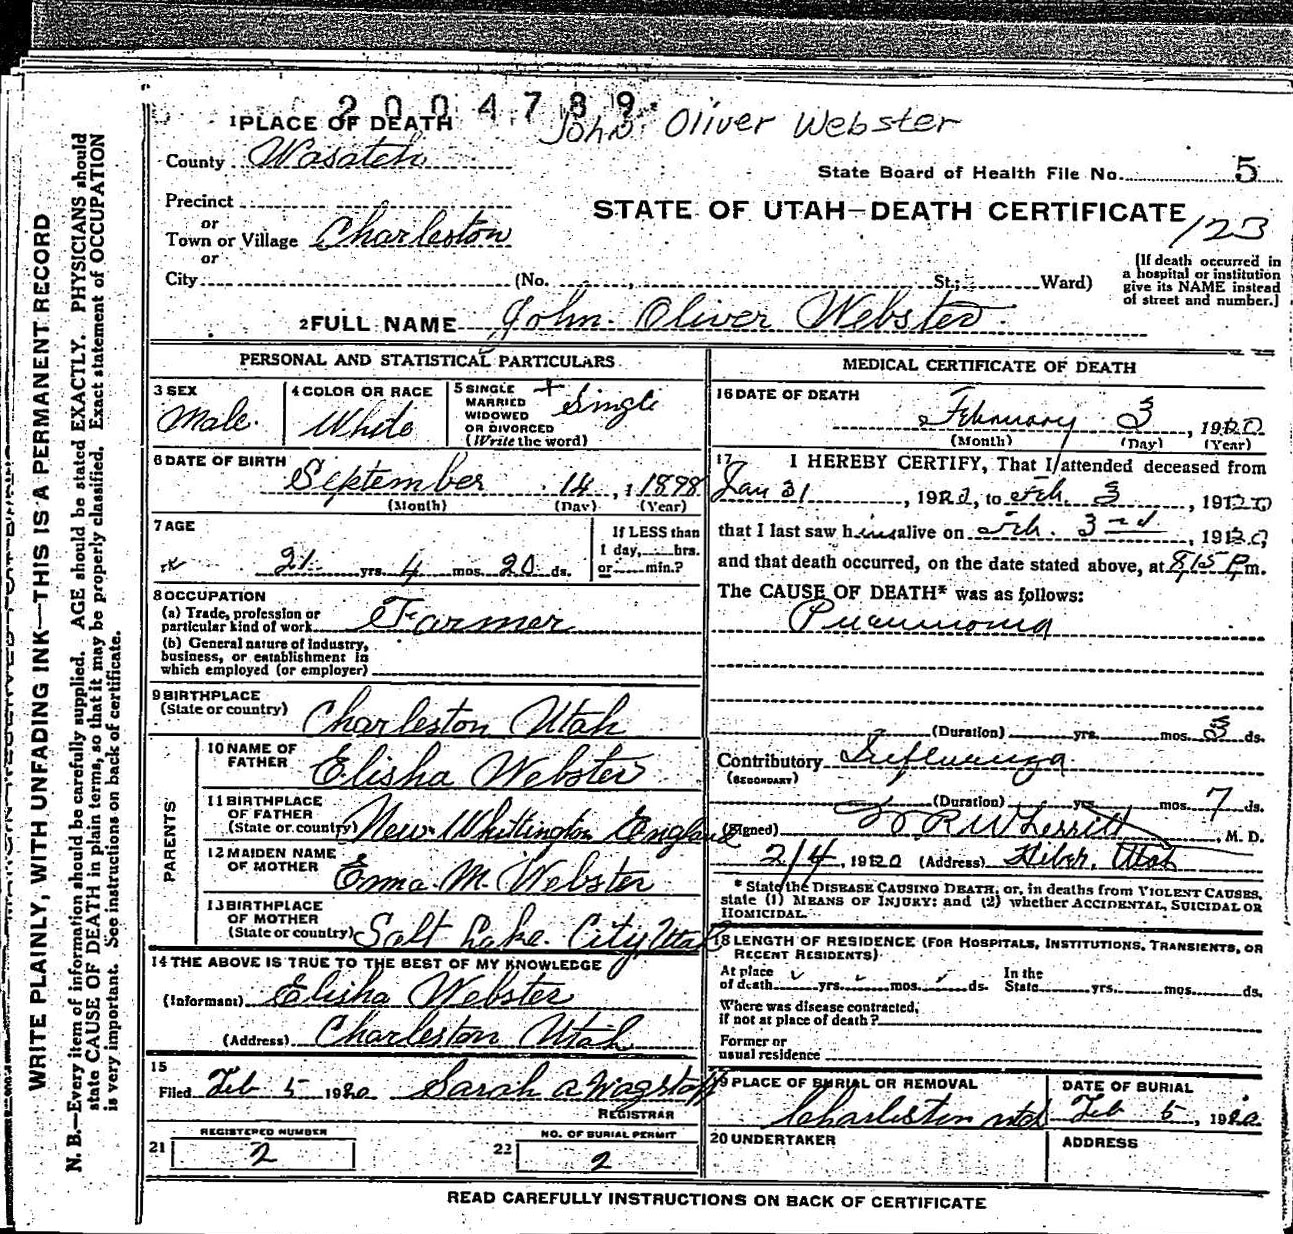 2004789
John Oliver Webster
1 PLACE OF DEATH
County Wasatch
State Board of Health File No. 5
Precinct
or
Town or Village Charleston
or
City (No. , St.; Ward)
STATE OF UTAH—DEATH CERTIFICATE
123
[If death occurred in
a hospital or institution
give its NAME instead
of street and number.]
2 FULL NAME John Oliver Webster
PERSONAL AND STATISTICAL PARTICULARS
3 SEX
Male
4 COLOR OR RACE
White
5 SINGLE
MARRIED
WIDOWED
OR DIVORCED
(Write the word)
Single
6 DATE OF BIRTH
September 14, 1898
(Month) (Day) (Year)
7 AGE
21 yrs. 4 mos. 20 ds.
If LESS than
1 day, hrs.
or min.?
8 OCCUPATION
(a) Trade, profession or
particular kind of work Farmer
(b) General nature of industry,
business, or establishment in
which employed (or employer)
9 BIRTHPLACE
(State or country) Charleston Utah
PARENTS
10 NAME OF
FATHER Elisha Webster
11 BIRTHPLACE
OF FATHER
(State or country) New Whittington England
12 MAIDEN NAME
OF MOTHER Emma M. Webster
13 BIRTHPLACE
OF MOTHER
(State or country) Salt Lake City Utah
14 THE ABOVE IS TRUE TO THE BEST OF MY KNOWLEDGE
(Informant) Elisha Webster
(Address) Charleston Utah
15
Filed Feb 5 1920 Sarah A Wagstaff
REGISTRAR
REGISTERED NUMBER
21 2
NO. OF BURIAL PERMIT
22 2
MEDICAL CERTIFICATE OF DEATH
16 DATE OF DEATH
February 3, 1920
(Month) (Day) (Year)
17 I HEREBY CERTIFY, That I attended deceased from
Jan 31, 1920, to Feb. 3, 1920
that I last saw him alive on Feb. 3rd, 1920
and that death occurred, on the date stated above, at 8,15 P.m.
The CAUSE OF DEATH* was as follows:
Pneumonia
(Duration) yrs. mos. 3 ds.
Contributory Influenza
(SECONDARY)
(Duration) yrs. mos. 7 ds.
(Signed) W R Wherritt, M. D.
2/4, 1920 (Address) Heber, Utah
* State the DISEASE CAUSING DEATH, or, in deaths from VIOLENT CAUSES,
state (1) MEANS OF INJURY; and (2) whether ACCIDENTAL, SUICIDAL OR
HOMICIDAL.
18 LENGTH OF RESIDENCE (FOR HOSPITALS, INSTITUTIONS, TRANSIENTS, OR
RECENT RESIDENTS)
At place
of death yrs. mos. ds.
In the
State yrs. mos. ds.
Where was disease contracted,
if not at place of death?
Former or
usual residence
19 PLACE OF BURIAL OR REMOVAL
Charleston Utah
DATE OF BURIAL
Feb 5, 1920
20 UNDERTAKER
ADDRESS
READ CAREFULLY INSTRUCTIONS ON BACK OF CERTIFICATE
WRITE PLAINLY, WITH UNFADING INK—THIS IS A PERMANENT RECORD
N. B.—Every item of information should be carefully supplied. AGE should be stated EXACTLY. PHYSICIANS should
state CAUSE OF DEATH in plain terms, so that it may be properly classified. Exact statement of OCCUPATION
is very important. See instructions on back of certificate.